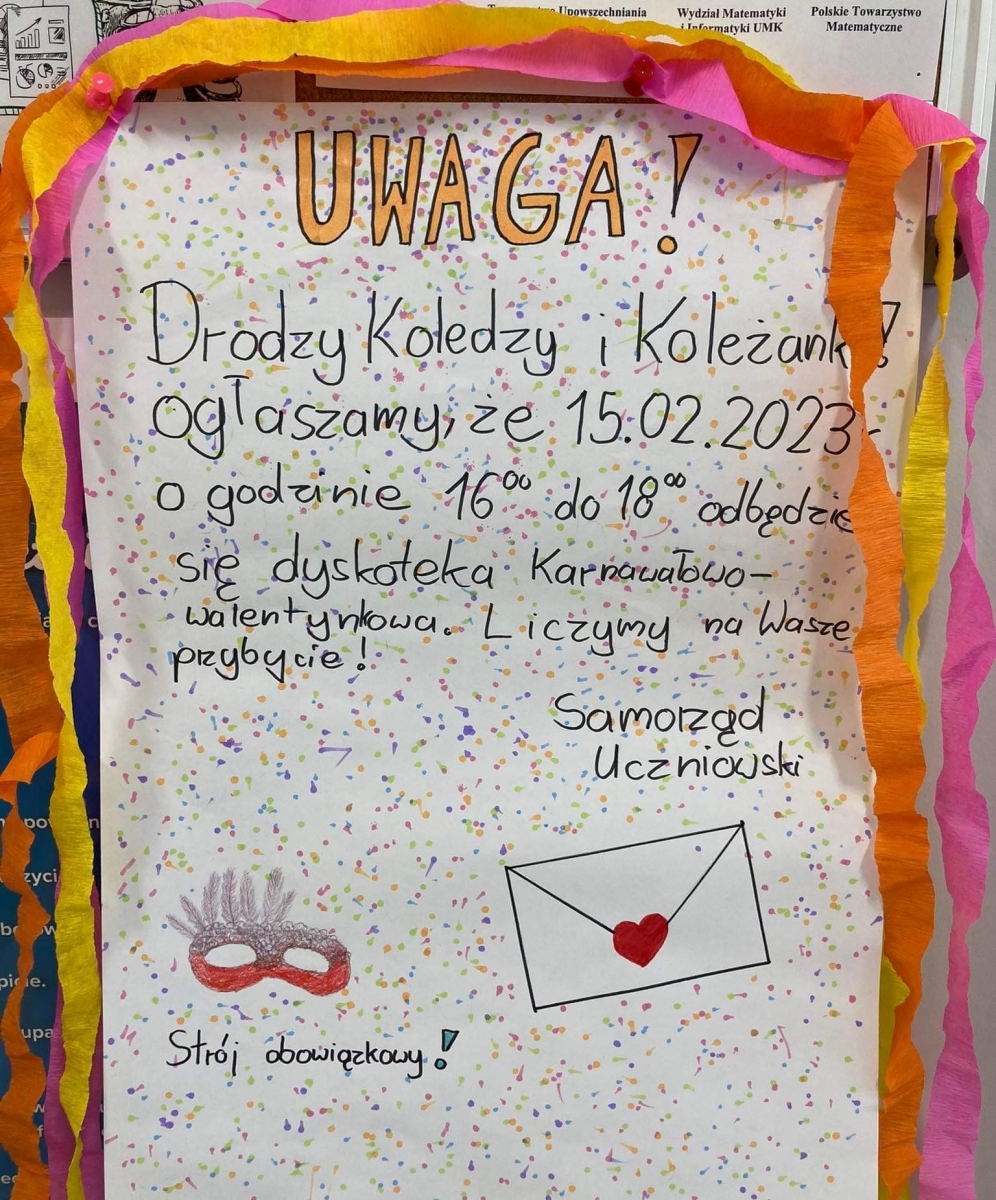 Upowszechniania
Wydział Matematyki
i Informatyki UMK
Polskie Towarzystwo
Matematyczne
UWAGA!
Drodzy Koledzy i Koleżank!
ogłaszamy, że 15.02.2023
o godzinie 16⁰⁰ do 18⁰⁰ odbędzie
się dyskoteka Karnawałowo-
walentynkowa. Liczymy na Wasze
przybycie!
Samorząd
Uczniowski
Strój obowiązkowy!